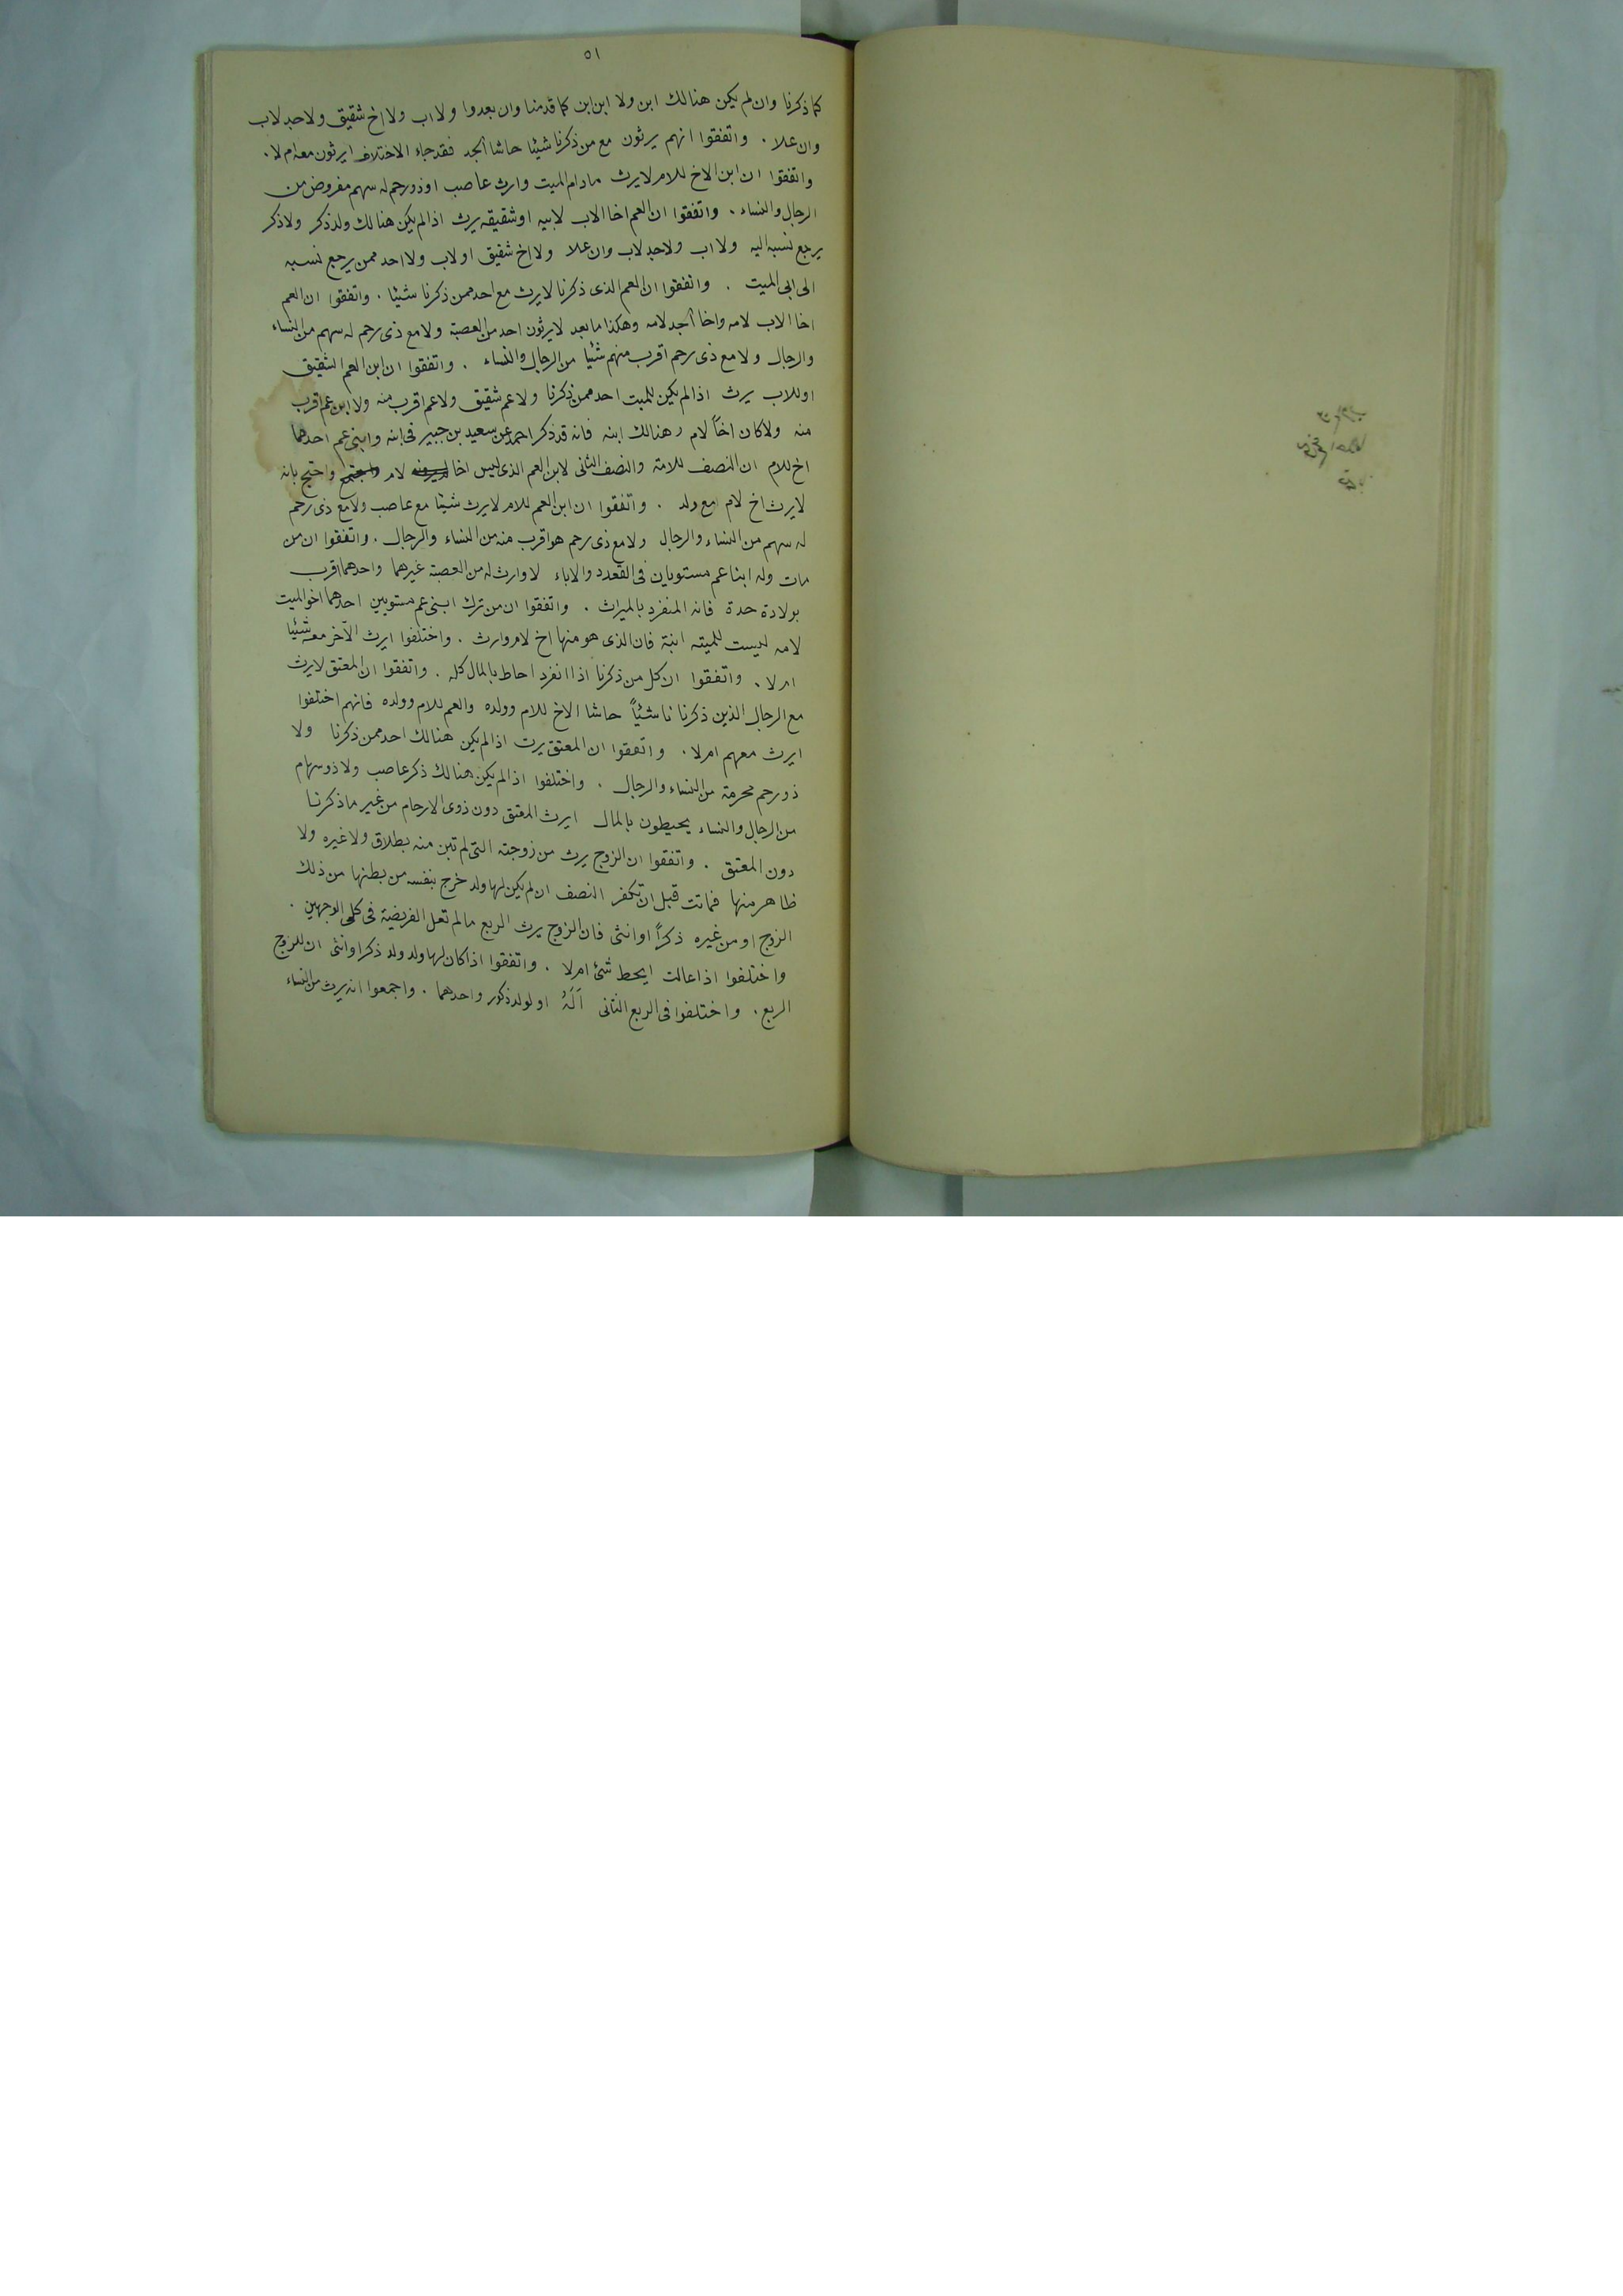 ٥١
كما ذكرنا وان لم يكن هنالك ابن ولا ابن ابن كما قدمنا وان بعدوا ولا اب ولا اخ شقيق ولا جد لاب
وان علا . واتفقوا انهم يرثون مع من ذكرنا شيئا حاشا الجد فقد جاء الاختلاف ايرثون معه ام لا .
واتفقوا ان ابن الاخ للام لا يرث مادام للميت وارث عاصب او ذو رحم له سهم مفروض من
الرجال والنساء . واتفقوا ان العم اخا الاب لابيه او شقيقه يرث اذا لم يكن هنالك ولد ذكر ولا ذكر
يرجع نسبه اليه ولا اب ولا جد لاب وان علا ولا اخ شقيق او لاب ولا احد ممن يرجع نسبه
الى ابى الميت . واتفقوا ان العم الذى ذكرنا لا يرث مع احد ممن ذكرنا شيئا . واتفقوا ان العم
اخا الاب لامه واخا الجد لامه وهكذا ما بعد لا يرثون احد من العصبة ولا مع ذى رحم له سهم من النساء
والرجال ولا مع ذى رحم اقرب منهم شئيا من الرجال والنساء . واتفقوا ان ابن العم الشقيق
او للاب يرث اذا لم يكن للميت احد ممن ذكرنا ولا عم شقيق ولا عم اقرب منه ولا ابن عم اقرب
منه ولا كان اخاً لام وهنالك ابنه فانه قد ذكر احمد عن سعيد بن جبير فى ابنه وابنى عم احدهما
اخ للام ان النصف للابنة والنصف الثانى لابن العم الذى ليس اخا لام واحتج بانه
لا يرث اخ لام مع ولد . واتفقوا ان ابن العم للام لا يرث شيئا مع عاصب ولا مع ذى رحم
له سهم من النساء والرجال ولا مع ذى رحم هو اقرب منه من النساء والرجال . واتفقوا ان من
مات وله ابنا عم مستويان فى القعدد والاباء لا وارث له من العصبة غيرهما واحدهما اقرب
بولادة جدة فانه المنفرد بالميراث . واتفقوا ان من ترك ابنى عم مستويين احدهما اخو الميت
لامه ليست للميته ابنة فان الذى هو منها اخ لام وارث . واختلفوا ايرث الآخر معه شئيا
ام لا . واتفقوا ان كل من ذكرنا اذا انفرد احاط بالمال كله . واتفقوا ان المعتق لا يرث
مع الرجال الذين ذكرنا شئياً حاشا الاخ للام وولده والعم للام وولده فانهم اختلفوا
ايرث معهم ام لا . واتفقوا ان المعتق يرث اذا لم يكن هنالك احد ممن ذكرنا ولا
ذو رحم محرمة من النساء والرجال . واختلفوا اذا لم يكن هنالك ذكر عاصب ولا ذو سهام
من الرجال والنساء يحيطون بالمال ايرث المعتق دون ذوى الارحام من غير ما ذكرنا
دون المعتق . واتفقوا ان الزوج يرث من زوجته التى لم تبن منه بطلاق ولا غيره ولا
ظاهر منها فماتت قبل ان تكفر النصف ان لم يكن لها ولد خرج بنفسه من بطنها من ذلك
الزوج او من غيره ذكراً او انثى فان الزوج يرث الربع ما لم تعل الفريضة فى كلى الوجهين .
واختلفوا اذا عالت ايحط شئ ام لا . واتفقوا اذا كان لها ولد ولد ذكر او انثى ان للزوج
الربع . واختلفوا فى الربع الثانى أَلَهُ او لولد ذكور واحدهما . واجمعوا انه يرث من النساء